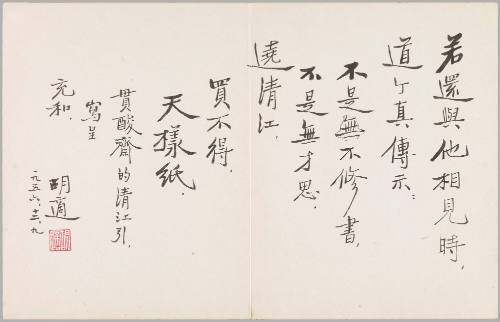 若還與他相見時，
道个真傳示：
不是無不修書，
不是無才思．
遶清江，
買不得，
天樣紙．
貫酸齋的清江引，
寫呈
充和．
胡適
一九五六．十二．九